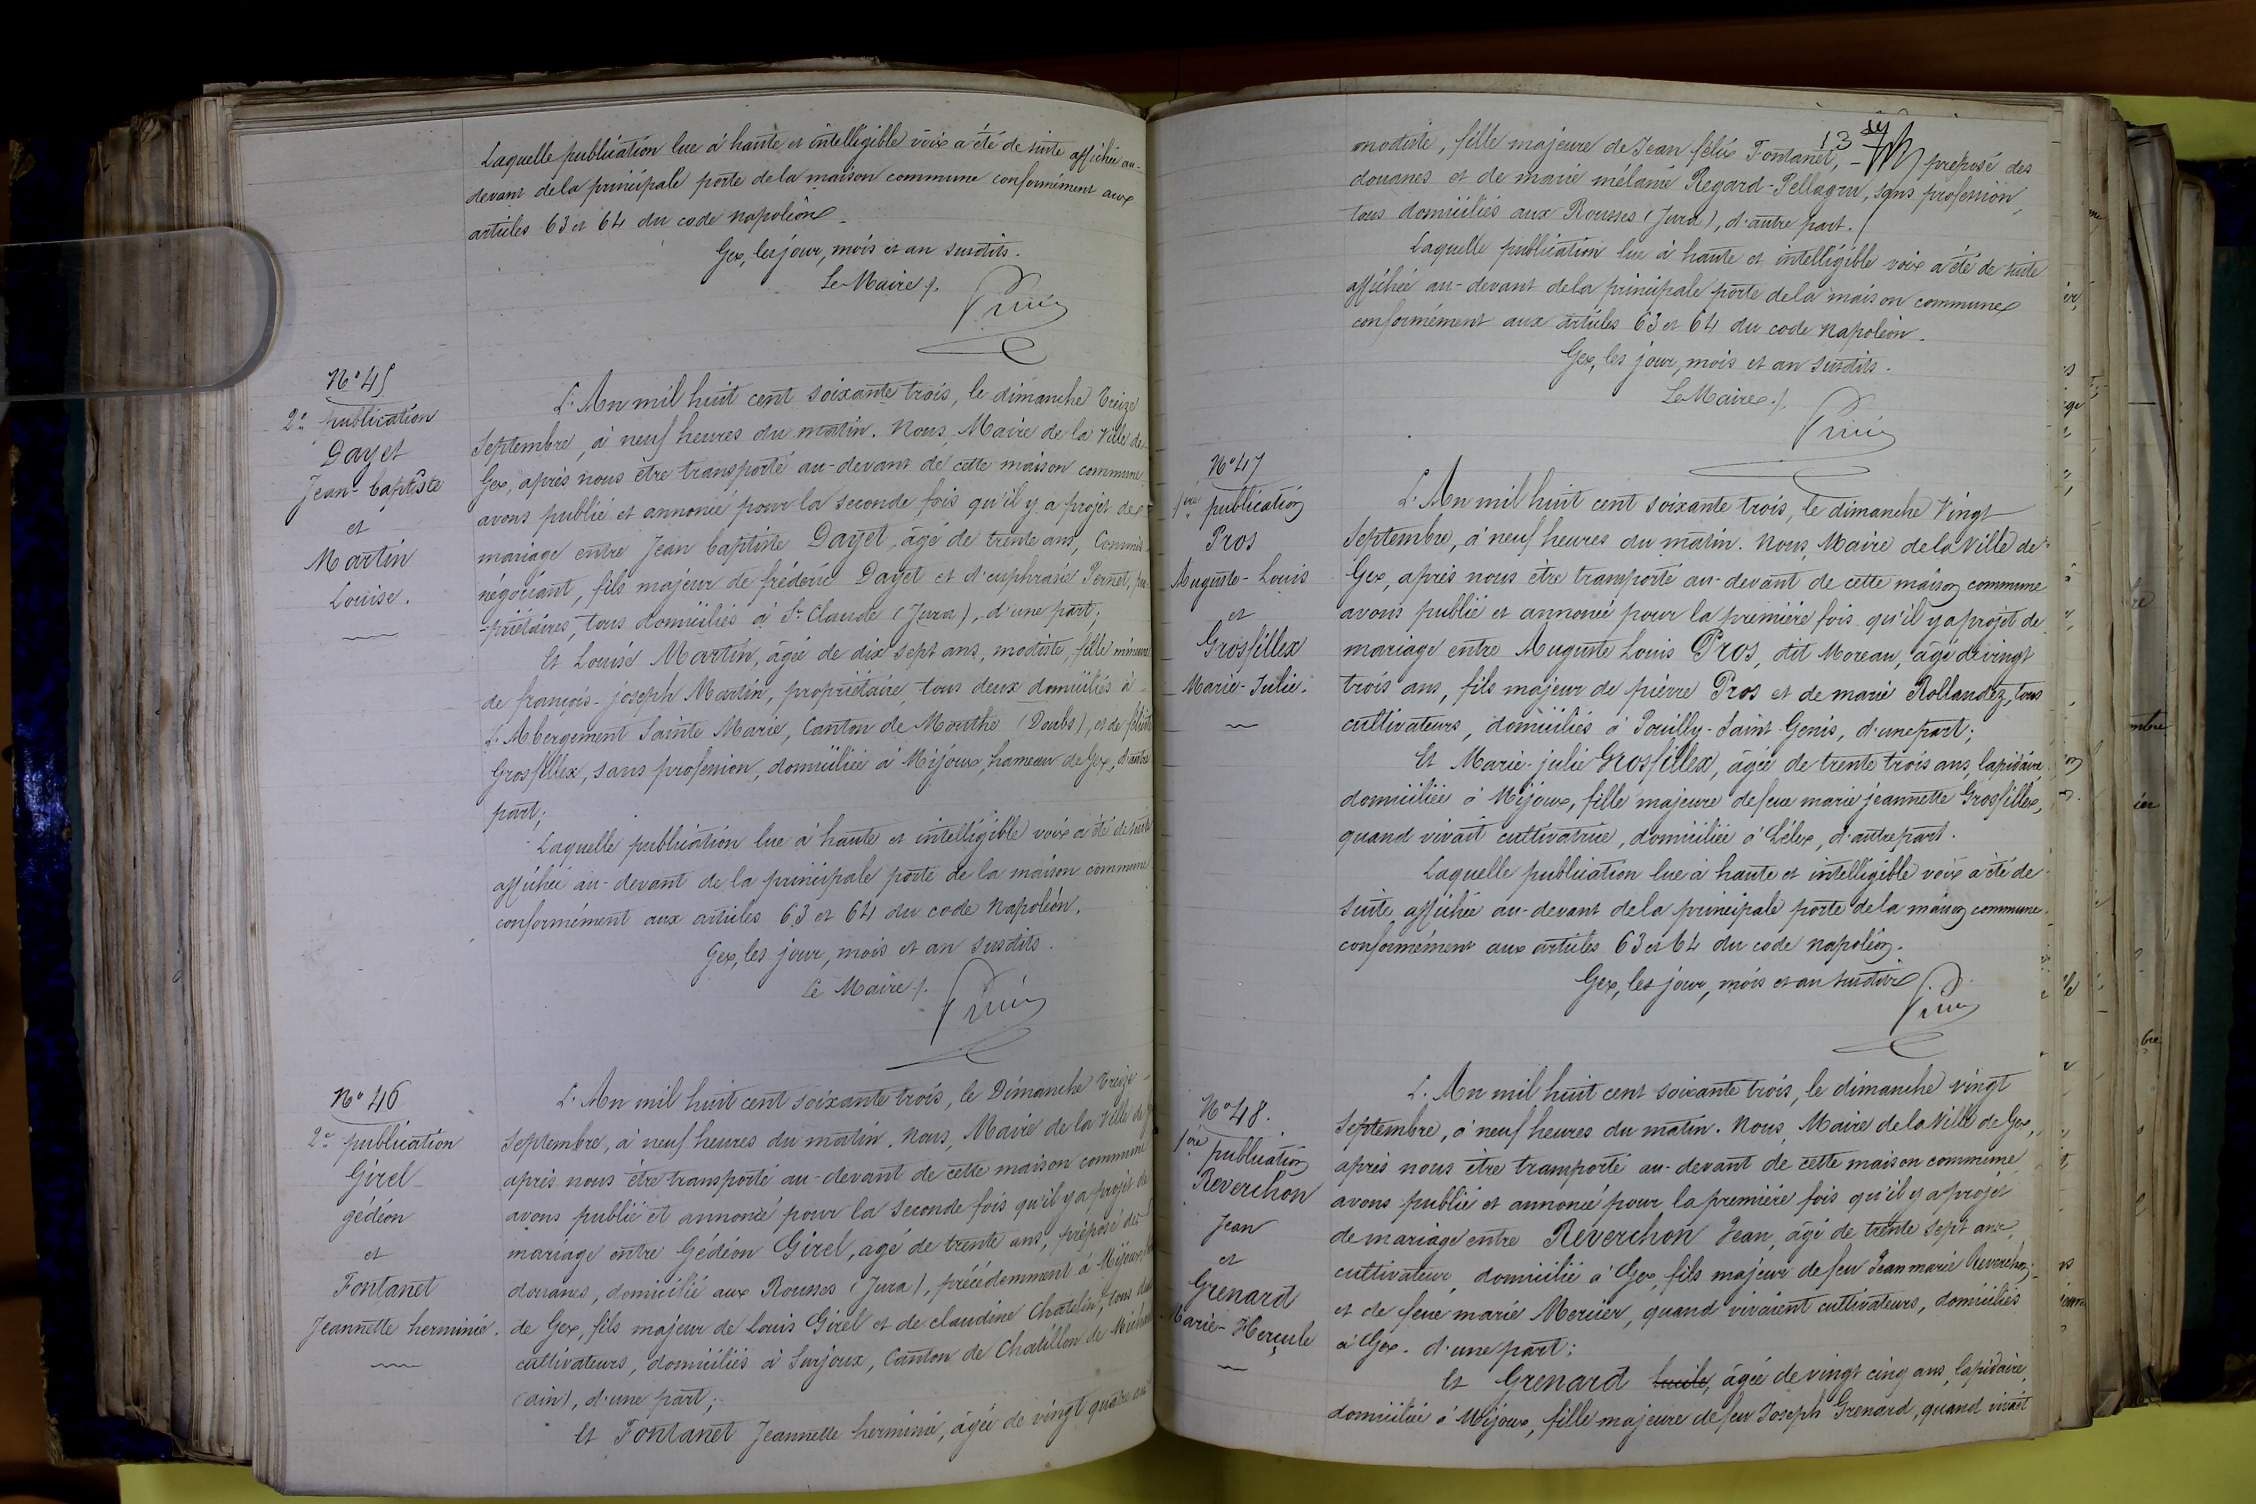 Laquelle publication lue à haute et intelligible voix a été de suite affichée au-
devant de la principale porte de la maison commune conformément aux
articles 63 et 64 du code napoléon.
Gex, les jour, mois et an susdits.
Le Maire
N° 45
2e publication
Dayet
Jean-baptiste
et
Martin
Louise.
L'An mil huit cent soixante trois, le dimanche Treize
Septembre, à neuf heures du matin. Nous, Maire de la Ville de
Gex, après nous être transporté au-devant de cette maison commune
avons publié et annoncé pour la seconde fois qu'il y a projet de
mariage entre Jean baptiste Dayet, âgé de trente ans, Commis
négociant, fils majeur de fréderic Dayet et d'euphrasie Pernet, pro-
-priétaires, tous domiciliés à St Claude (Jura), d'une part;
Et Louise Martin, âgée de dix sept ans, modiste, fille mineure
de françois-joseph Martin, propriétaire, tous deux domiciliés à
L'Abergement Sainte Marie, Canton de Mouthe (Doubs), et de
Grosfillex, sans profession, domiciliée à Mijoux, hameau de Gex, d'autre
part;
Laquelle publication lue à haute et intelligible voix a été de suite
affichée au-devant de la principale porte de la maison commune
conformément aux articles 63 et 64 du code Napoléon.
Gex, les jour, mois et an susdits.
Le Maire
N° 46
2e publication
Girel
gédéon
et
Fontanet
Jeannette herminie.
L'An mil huit cent soixante trois, le Dimanche Treize
Septembre, à neuf heures du matin. Nous, Maire de la Ville de
après nous être transporté au-devant de cette maison commune
avons publié et annoncé pour la seconde fois qu'il y a projet de
mariage entre Gédéon Girel, âgé de trente ans, préposé des
douanes, domicilié aux Rousses (Jura), précédemment à Mijoux
de Gex, fils majeur de Louis Girel et de claudine Chatelin, tous deux
cultivateurs, domiciliés à Surjoux, Canton de Chatillon de Michaille
(ain), d'une part;
Et Fontanet Jeannette herminie, âgée de vingt quatre ans
13
modiste, fille majeure de Jean félix Fontanet, préposé des
douanes et de marie mélanie Regard-Pellagru, sans profession,
tous domiciliés aux Rousses (Jura), d'autre part.
Laquelle publication lue à haute et intelligible voix a été de suite
affichée au-devant de la principale porte de la maison commune
conformément aux articles 63 et 64 du code Napoléon.
Gex, les jour, mois et an susdits.
Le Maire
N° 47
1ère publication
Pros
Auguste-Louis
et
Grosfillex
Marie-Julie.
L'An mil huit cent soixante trois, le dimanche Vingt
Septembre, à neuf heures du matin. Nous, Maire de la Ville de
Gex, après nous être transporté au-devant de cette maison commune
avons publié et annoncé pour la première fois qu'il y a projet de
mariage entre Auguste Louis Pros, dit Moreau, âgé de vingt
trois ans, fils majeur de pierre Pros et de marie Rollandez, tous
cultivateurs, domiciliés à Pouilly-Saint-Genis, d'une part;
Et Marie-julie Grosfillex, âgée de trente trois ans, lapidaire
domiciliée à Mijoux, fille majeure de feue marie jeannette Grosfillex,
quand vivait cultivatrice, domiciliée à Lélex, d'autre part.
Laquelle publication lue à haute et intelligible voix a été de
suite affichée au-devant de la principale porte de la maison commune
conformément aux articles 63 et 64 du code napoléon.
Gex, les jour, mois et an susdits
N° 48.
1ère publication
Reverchon
Jean
et
Grenard
Marie-Hercule
L'An mil huit cent soixante trois, le dimanche vingt
Septembre, à neuf heures du matin. Nous, Maire de la Ville de Gex,
après nous être transporté au-devant de cette maison commune
avons publié et annoncé pour la première fois qu'il y a projet
de mariage entre Reverchon Jean, âgé de trente sept ans,
cultivateur, domicilié à Gex, fils majeur de feu Jean marie Reverchon
et de feue marie Mercier, quand vivaient cultivateurs, domiciliés
à Gex. d'une part;
Et Grenard âgée de vingt cinq ans, lapidaire,
domiciliée à Mijoux, fille majeure de feu Joseph Grenard, quand vivait